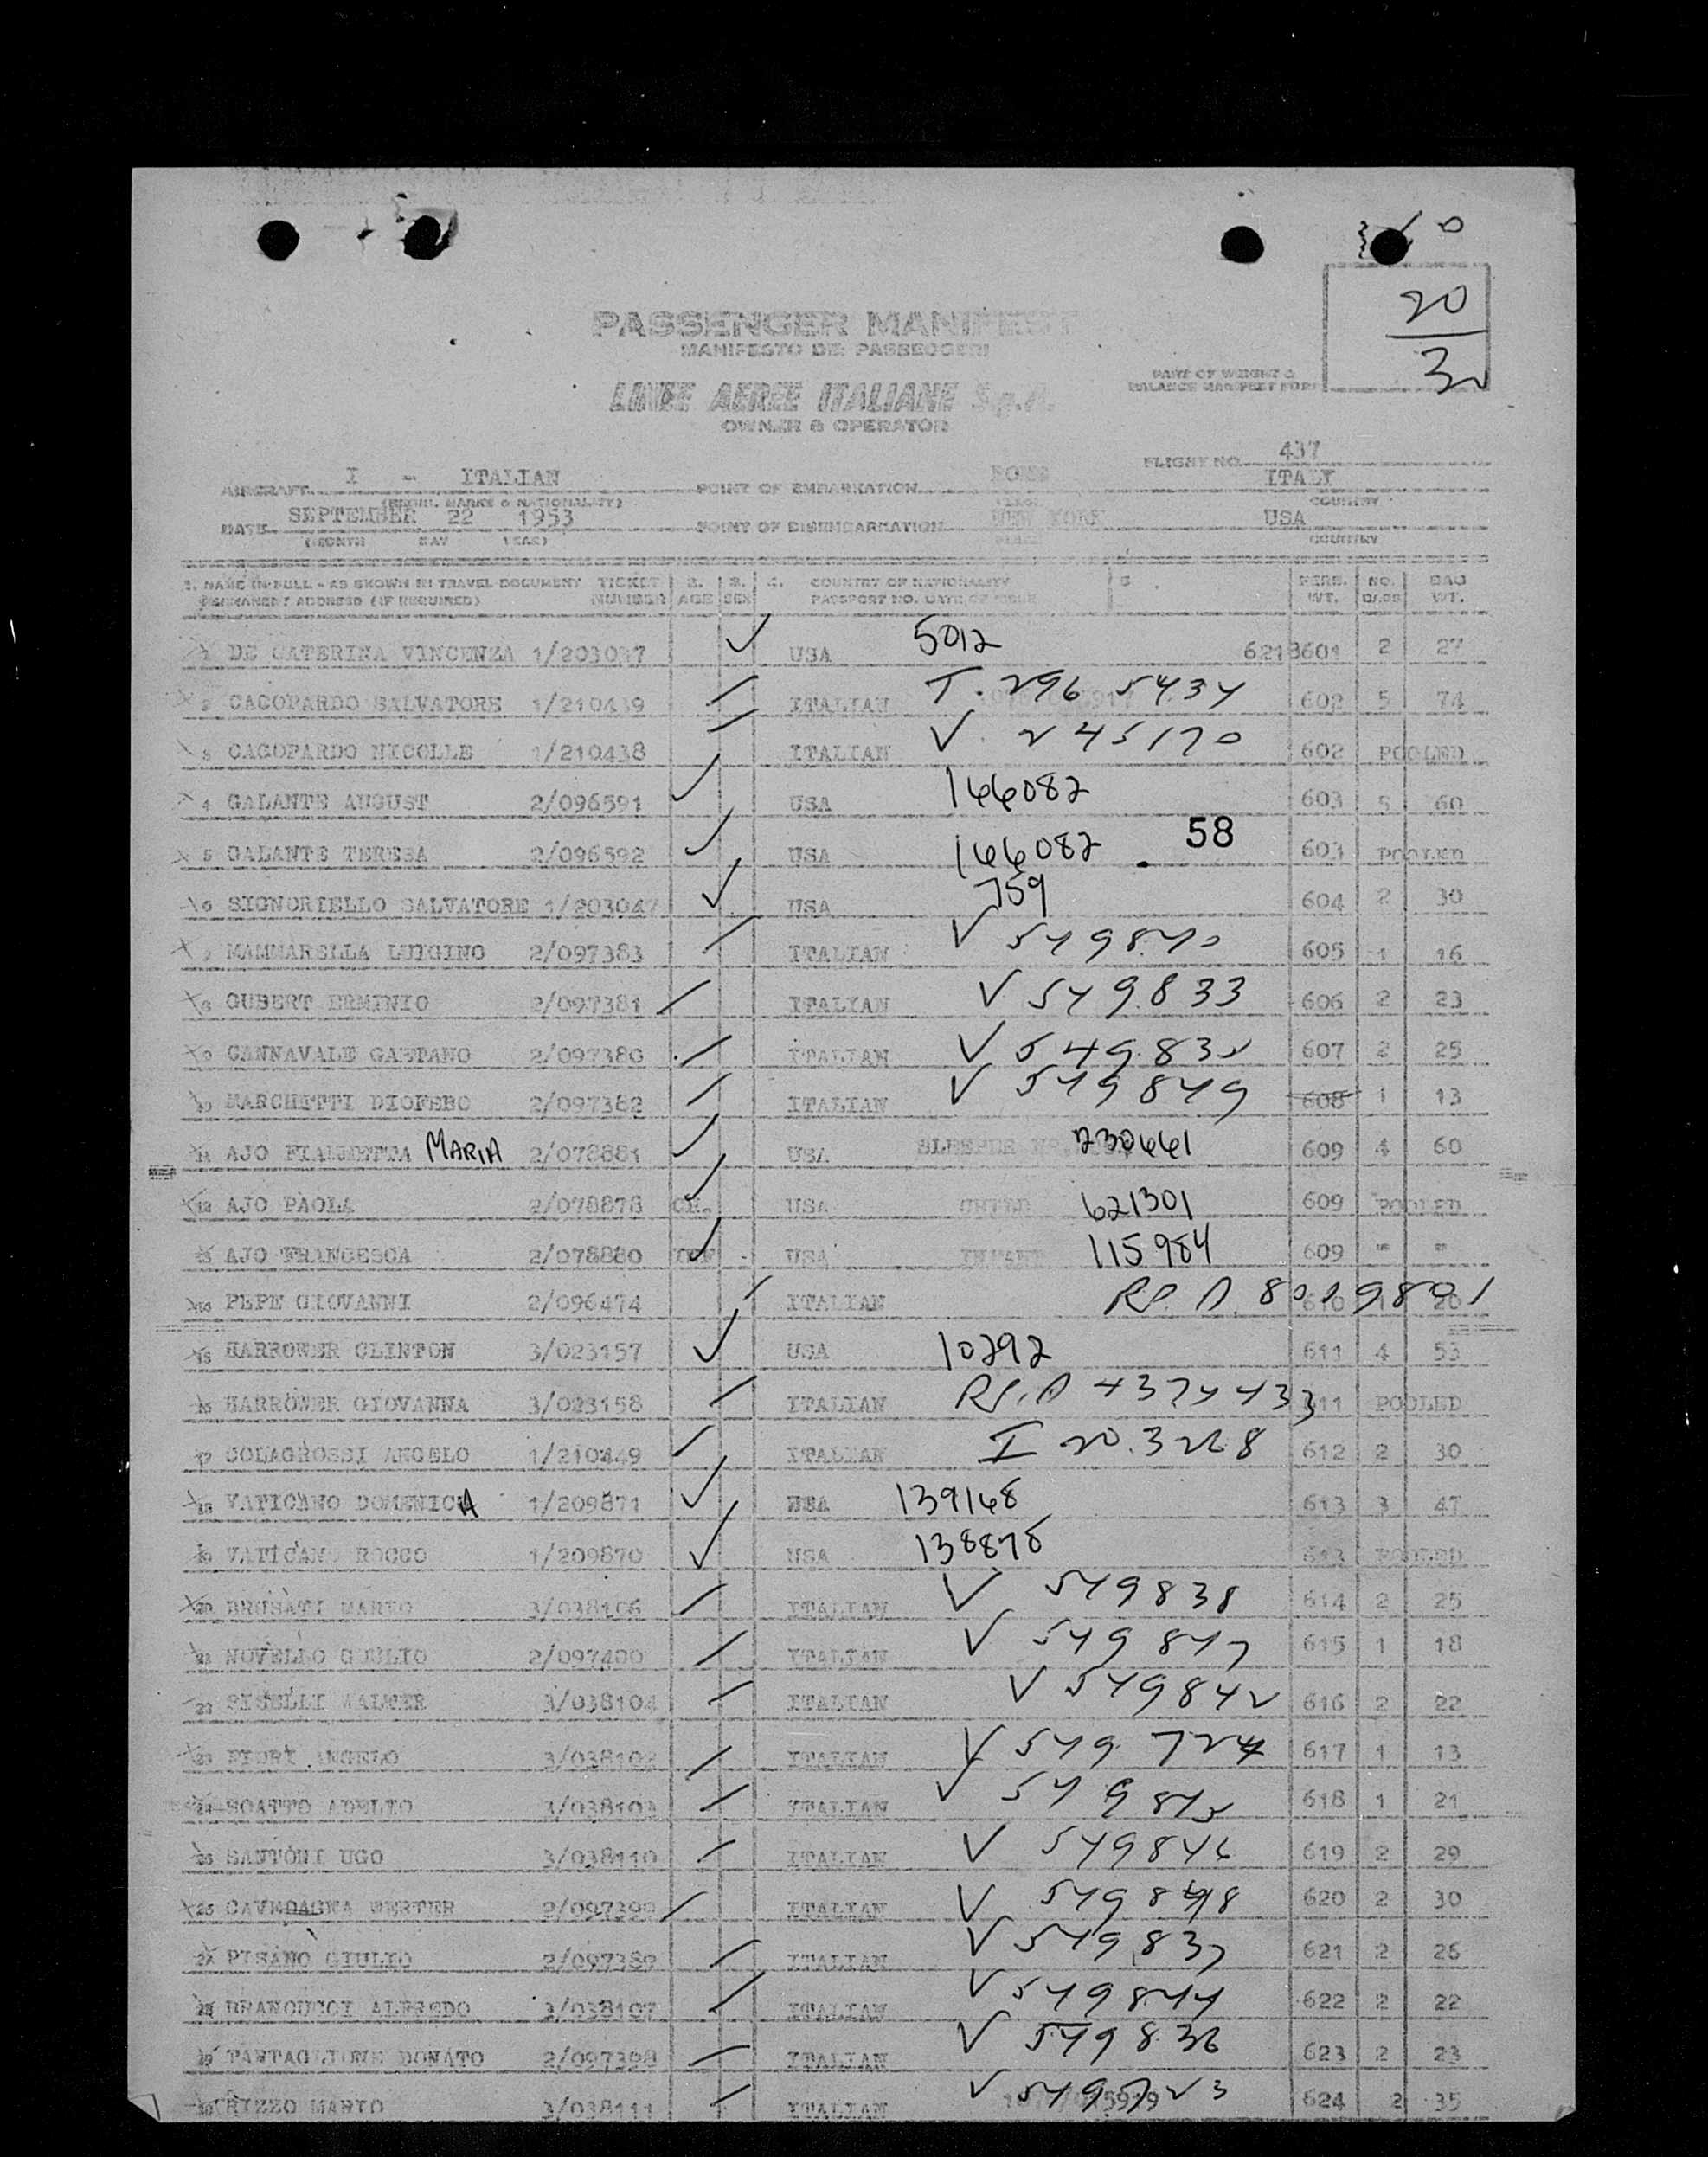 20
3
PASSENGER MANIFEST
MANIFESTO DEI PASSEGGERI
PART OF WEIGHT &
BALANCE MANIFEST FORM
LINEE AEREE ITALIANE S.p.A.
OWNER & OPERATOR
FLIGHT NO. 437
AIRCRAFT I - ITALIAN POINT OF EMBARKATION ROME ITALY
(REGIN. MARKS & NATIONALITY) COUNTRY
DATE SEPTEMBER 22 1953 POINT OF DISEMBARKATION NEW YORK USA
(MONTH DAY YEAR) PLACE COUNTRY
1. NAME IN FULL - AS SHOWN IN TRAVEL DOCUMENT TICKET 2. 3. 4. COUNTRY OF NATIONALITY 5. PERS. NO. BAG
PERMANENT ADDRESS (IF REQUIRED) NUMBER AGE SEX PASSPORT NO. DATE OF ISSUE WT. BAGS WT.
1 DE CATERINA VINCENZA 1/203037 USA 5012 6218601 2 27
2 CACOPARDO SALVATORE 1/210439 ITALIAN T. 296 5434 602 5 74
3 CACOPARDO NICOLLE 1/210438 ITALIAN V. 245170 602 POOLED
4 GALANTE AUGUST 2/096591 USA 166082 603 5 60
5 GALANTE TERESA 2/096592 USA 166082 58 603 POOLED
6 SIGNORIELLO SALVATORE 1/203047 USA 759 604 2 30
7 MAMMARELLA LUIGINO 2/097383 ITALIAN V 549840 605 1 16
8 GUBERT ERMINIO 2/097381 ITALIAN V 549833 606 2 23
9 CANNAVALE GAETANO 2/097380 ITALIAN V 549832 607 2 25
10 MARCHETTI DIOFEBO 2/097382 ITALIAN V 549849 608 1 13
11 AJO FIAMMETTA MARIA 2/078881 USA SLEEPER 230661 609 4 60
12 AJO PAOLA 2/078878 CH. USA CHILD 621301 609 POOLED
13 AJO FRANCESCA 2/078880 INF USA INFANT 115984 609 " "
14 PEPE GIOVANNI 2/096474 ITALIAN 610 1 20
15 HARROWER CLINTON 3/023157 USA 10292 611 4 53
16 HARROWER GIOVANNA 3/023158 ITALIAN 611 POOLED
17 COLAGROSSI ANGELO 1/210449 ITALIAN I 20.3228 612 2 30
18 VATICANO DOMENICA 1/209871 USA 139168 613 3 47
19 VATICANO ROCCO 1/209870 USA 138878 613 POOLED
20 BRUSATI MARIO 3/038106 ITALIAN V 549838 614 2 25
21 NOVELLO GIULIO 2/097400 ITALIAN V 549847 615 1 18
22 PISELLI WALTER 3/038104 ITALIAN V 549842 616 2 22
23 FIORI ANGELO 3/038102 ITALIAN V 549724 617 1 13
24 SOATTO ADELIO 3/038103 ITALIAN V 618 1 21
25 SANTONI UGO 3/038110 ITALIAN V 549846 619 2 29
26 CAVEDAGNA WERTER 2/097399 ITALIAN V 549848 620 2 30
27 PISANO GIULIO 2/097389 ITALIAN V 549837 621 2 26
28 BRANCUCCI ALFREDO 3/038107 ITALIAN V 549844 622 2 22
29 TARTAGLIONE DONATO 2/097398 ITALIAN V 549836 623 2 23
30 RIZZO MARIO 3/038111 ITALIAN V 549723 624 2 35